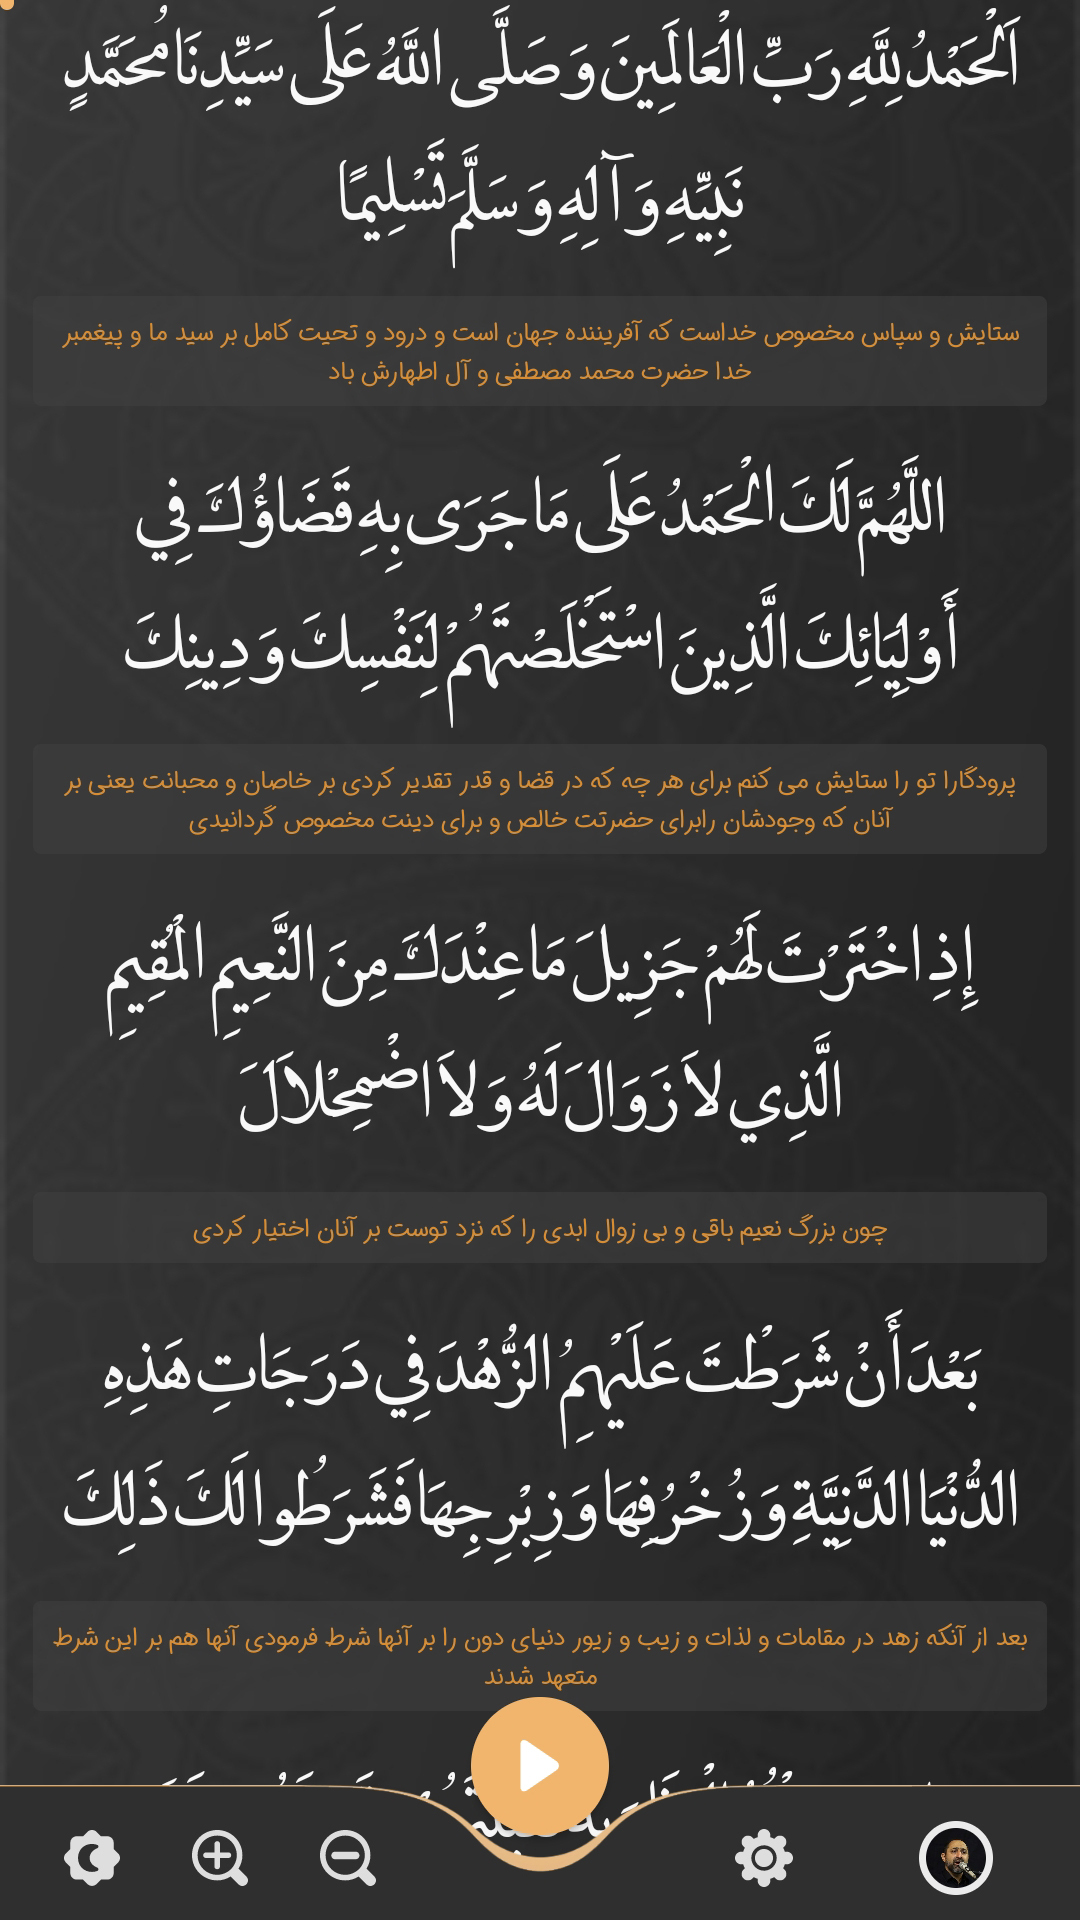 اَلْحَمْدُ لِلَّهِ رَبِّ الْعَالَمِينَ وَ صَلَّى اللَّهُ عَلَى سَيِّدِنَا مُحَمَّدٍ
نَبِيِّهِ وَ آلِهِ وَ سَلَّمَ تَسْلِيمًا
ستایش و سپاس مخصوص خداست که آفریننده جهان است و درود و تحیت کامل بر سید ما و پیغمبر
خدا حضرت محمد مصطفی و آل اطهارش باد
اللَّهُمَّ لَكَ الْحَمْدُ عَلَى مَا جَرَى بِهِ قَضَاؤُكَ فِي
أَوْلِيَائِكَ الَّذِينَ اسْتَخْلَصْتَهُمْ لِنَفْسِكَ وَ دِينِكَ
پرودگارا تو را ستایش می کنم برای هر چه که در قضا و قدر تقدیر کردی بر خاصان و محبانت یعنی بر
آنان که وجودشان رابرای حضرتت خالص و برای دینت مخصوص گردانیدی
إِذِ اخْتَرْتَ لَهُمْ جَزِيلَ مَا عِنْدَكَ مِنَ النَّعِيمِ الْمُقِيمِ
الَّذِي لاَ زَوَالَ لَهُ وَ لاَ اضْمِحْلاَلَ
چون بزرگ نعیم باقی و بی زوال ابدی را که نزد توست بر آنان اختیار کردی
بَعْدَ أَنْ شَرَطْتَ عَلَيْهِمُ الزُّهْدَ فِي دَرَجَاتِ هَذِهِ
الدُّنْيَا الدَّنِيَّةِ وَ زُخْرُفِهَا وَ زِبْرِجِهَا فَشَرَطُوا لَكَ ذَلِكَ
بعد از آنکه زهد در مقامات و لذات و زیب و زیور دنیای دون را بر آنها شرط فرمودی آنها هم بر این شرط
متعهد شدند